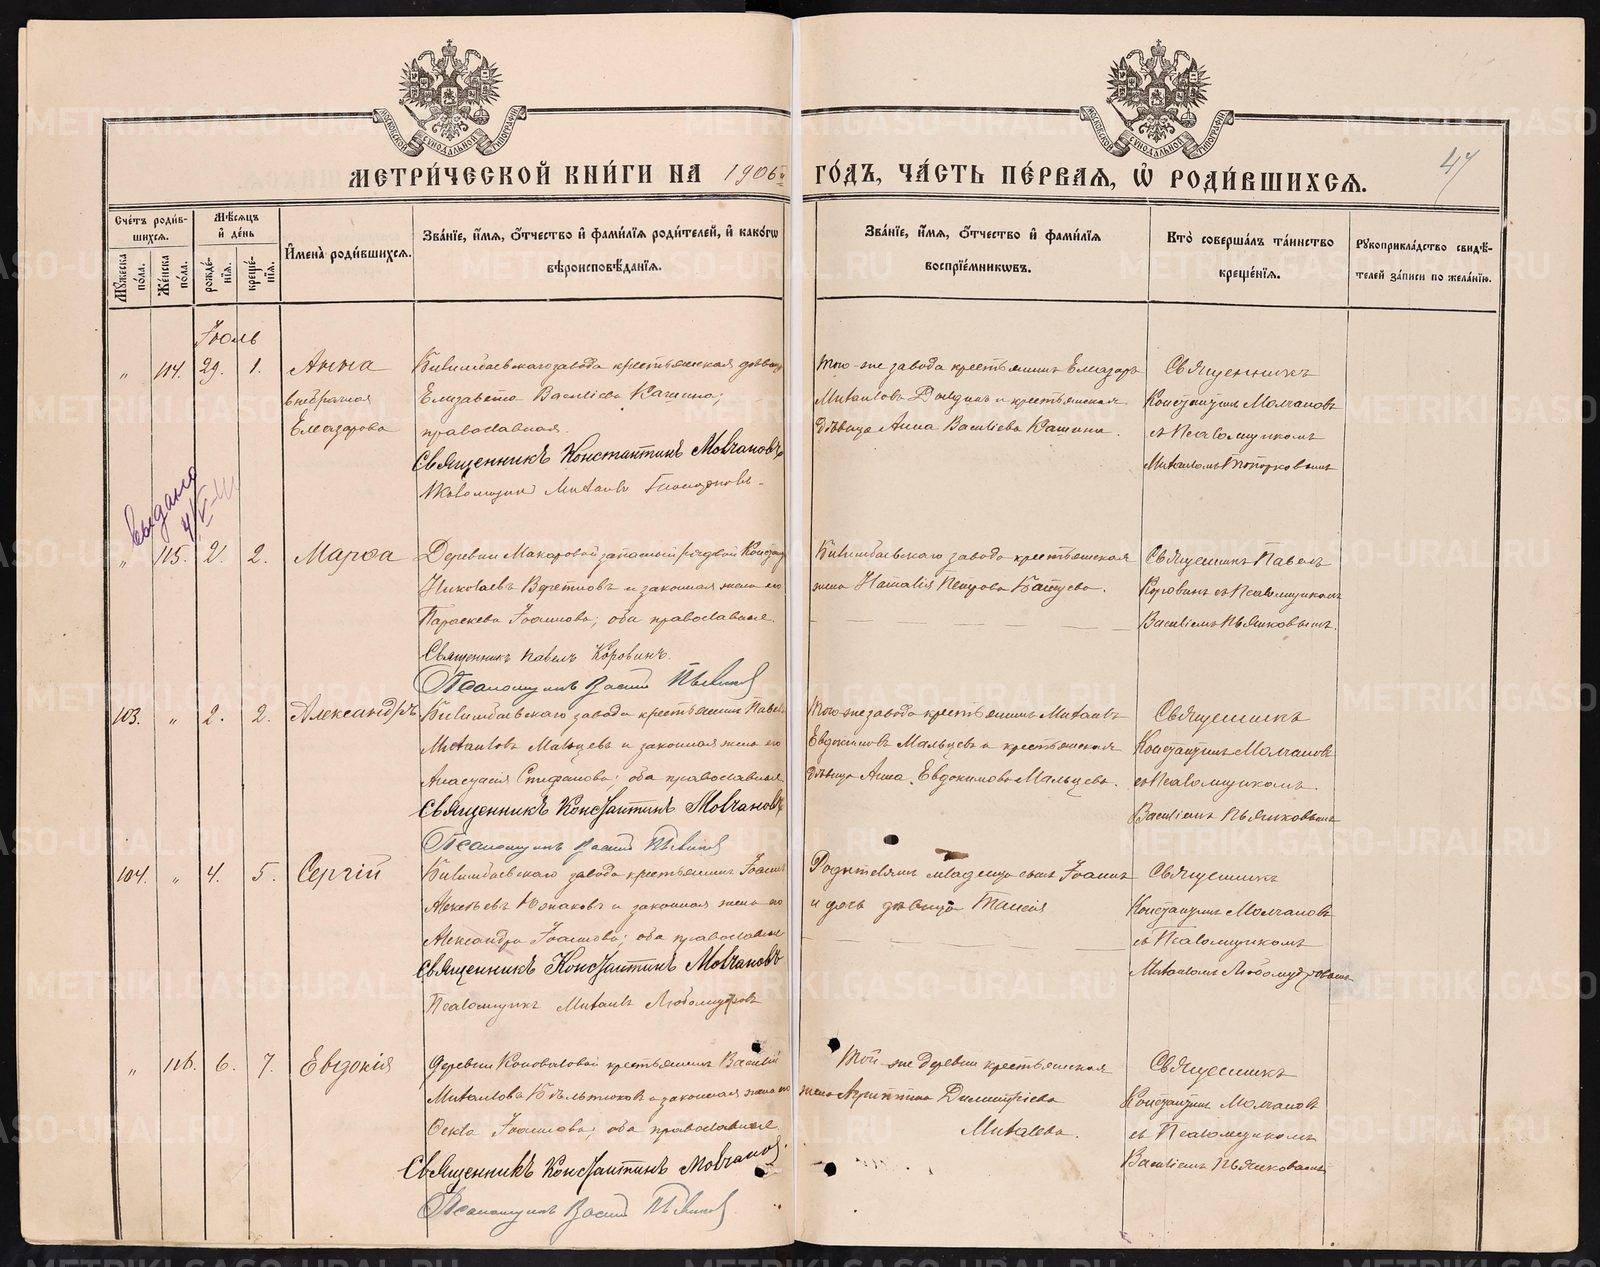 МОСКОВСКОЙ СѴНОДАЛЬНОЙ ТИПОГРАФІИ
МОСКОВСКОЙ СѴНОДАЛЬНОЙ ТИПОГРАФІИ
МЕТРИ́ЧЕСКОЙ КНИ́ГИ НА 1906й ГО́ДЪ, ЧА́СТЬ ПЕ́РВАЯ, Ѡ҆ РОДИ́ВШИХСЯ.
47
Сче́тъ роди́в-
шихся.
Мꙋ́жеска по́ла.
Же́нска по́ла.
Мѣ́сяцъ и҆ де́нь
рожде́-нїя.
креще́-нїя.
И҆мена̀ роди́вшихся.
Зва́нїе, и҆́мя, ѻ҆́тчество и҆ фами́лїя роди́телей, и҆ како́гѡ
вѣроисповѣ́данїя.
Зва́нїе, и҆́мя, ѻ҆́тчество и҆ фами́лїя
воспрїе́мникѡвъ.
Кто̀ соверша́лъ та́инство
креще́нїя.
Рꙋкоприкла́дство свидѣ́-
телей за́писи по жела́нїю.
Іюль
„ 114. 29. 1. Анна
внебрачная
Елеазарова
Билимбаевскаго завода крестьянская дѣвица
Елизавета Васильева Кашина;
православная.
Священникъ Константинъ Молчановъ
Псаломщикъ Михаилъ
Того-же завода крестьянинъ Елеазаръ
Михаиловъ и крестьянская
дѣвица Анна Васильева Кашина.
Священникъ
Константинъ Молчановъ
съ Псаломщикомъ
Михаиломъ
Выдано
„ 115. 2. 2. Марѳа
Деревни Макаровой запасный рядовой
Николаевъ и законная жена его
Параскева Іоаннова; оба православные.
Священникъ Павелъ Коровинъ.
Псаломщикъ Василій
Билимбаевскаго завода крестьянская
жена Наталія Петрова
Священникъ Павелъ
Коровинъ съ Псаломщикомъ
Василіемъ
103. „ 2. 2. Александръ
Билимбаевскаго завода крестьянинъ Павелъ
Михаиловъ Мальцевъ и законная жена его
Анастасія Стефанова; оба православные
Священникъ Константинъ Молчановъ
Псаломщикъ Василій
Того-же завода крестьянинъ Михаилъ
Евдокимовъ Мальцевъ и крестьянская
дѣвица Анна Евдокимова Мальцева.
Священникъ
Константинъ Молчановъ
съ Псаломщикомъ
Василіемъ
104. „ 4. 5. Сергій
Билимбаевскаго завода крестьянинъ Іоаннъ
Алексѣевъ и законная жена его
Александра Іоаннова; оба православные
Священникъ Константинъ Молчановъ
Псаломщикъ Михаилъ Любомудровъ
Родителямъ младенца сынъ Іоаннъ
и дочь дѣвица Таисія
Священникъ
Константинъ Молчановъ
съ Псаломщикомъ
Михаиломъ Любомудровымъ
„ 116. 6. 7. Евдокія
Деревни Коноваловой крестьянинъ Василій
Михаиловъ и законная жена его
Ѳекла Іоаннова; оба православные
Священникъ Константинъ Молчановъ
Псаломщикъ Василій
Той-же деревни крестьянская
жена Агриппина Димитріева
Михалева.
Священникъ
Константинъ Молчановъ
съ Псаломщикомъ
Василіемъ
METRIKI.GASO-URAL.RU